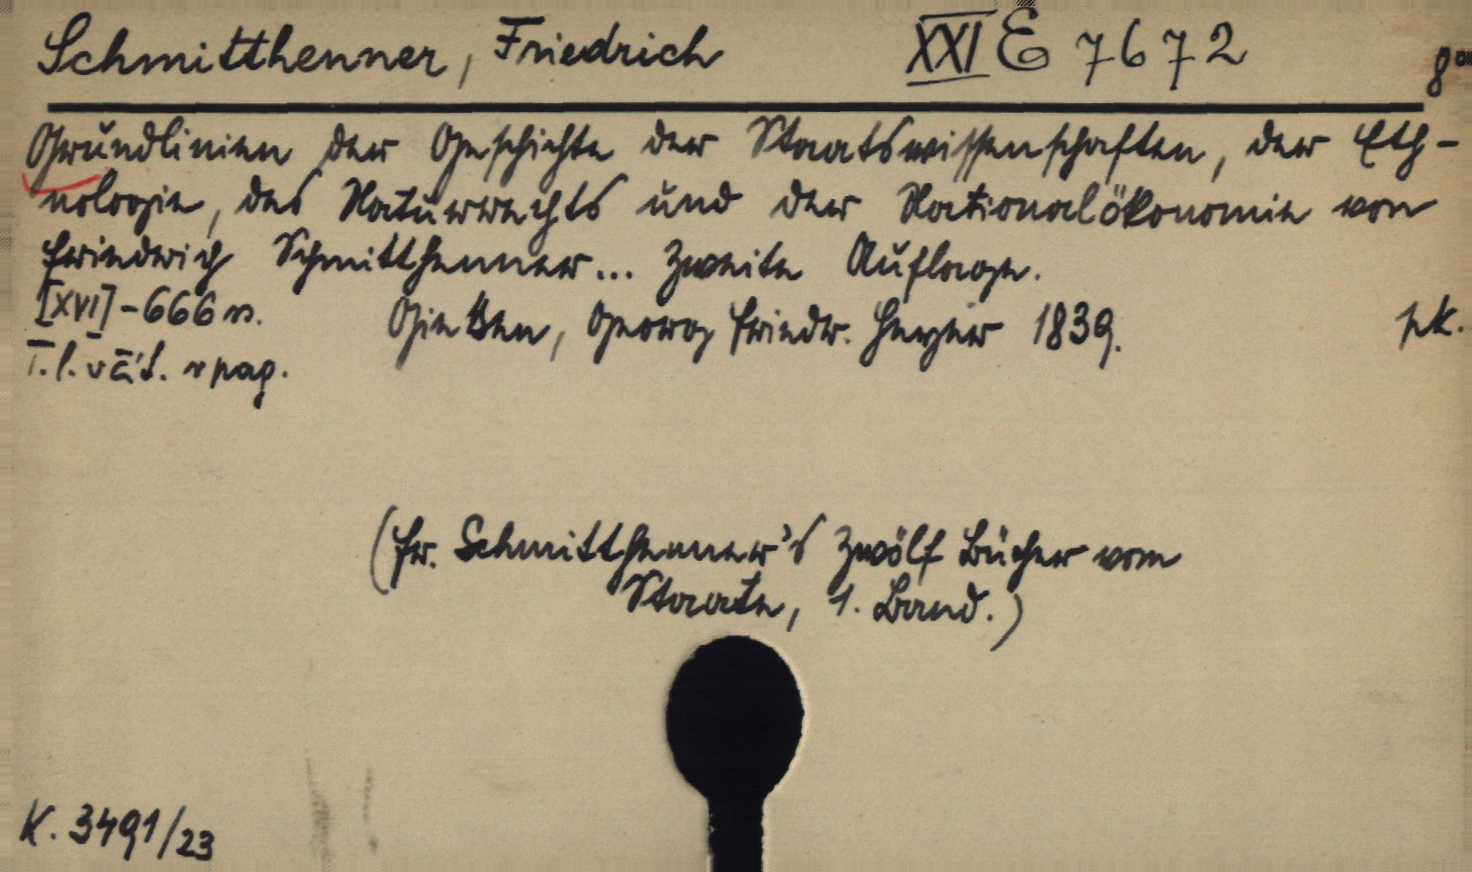 Schmitthenner, Friedrich XXI E 7672 8°
Grundlinien der Geschichte der Staatswissenschaften, der Eth-
nologie, des Naturrechts und der Nationalökonomie von
Friedrich Schmitthenner... Zweite Auflage.
[XVI]-666 s. Gießen, Georg Friedr. Heyer 1839. pk.
T. l. v čís. v pag.
(Fr. Schmitthenner's Zwölf Bücher vom
Staate, 1. Band.)
K. 3491/23